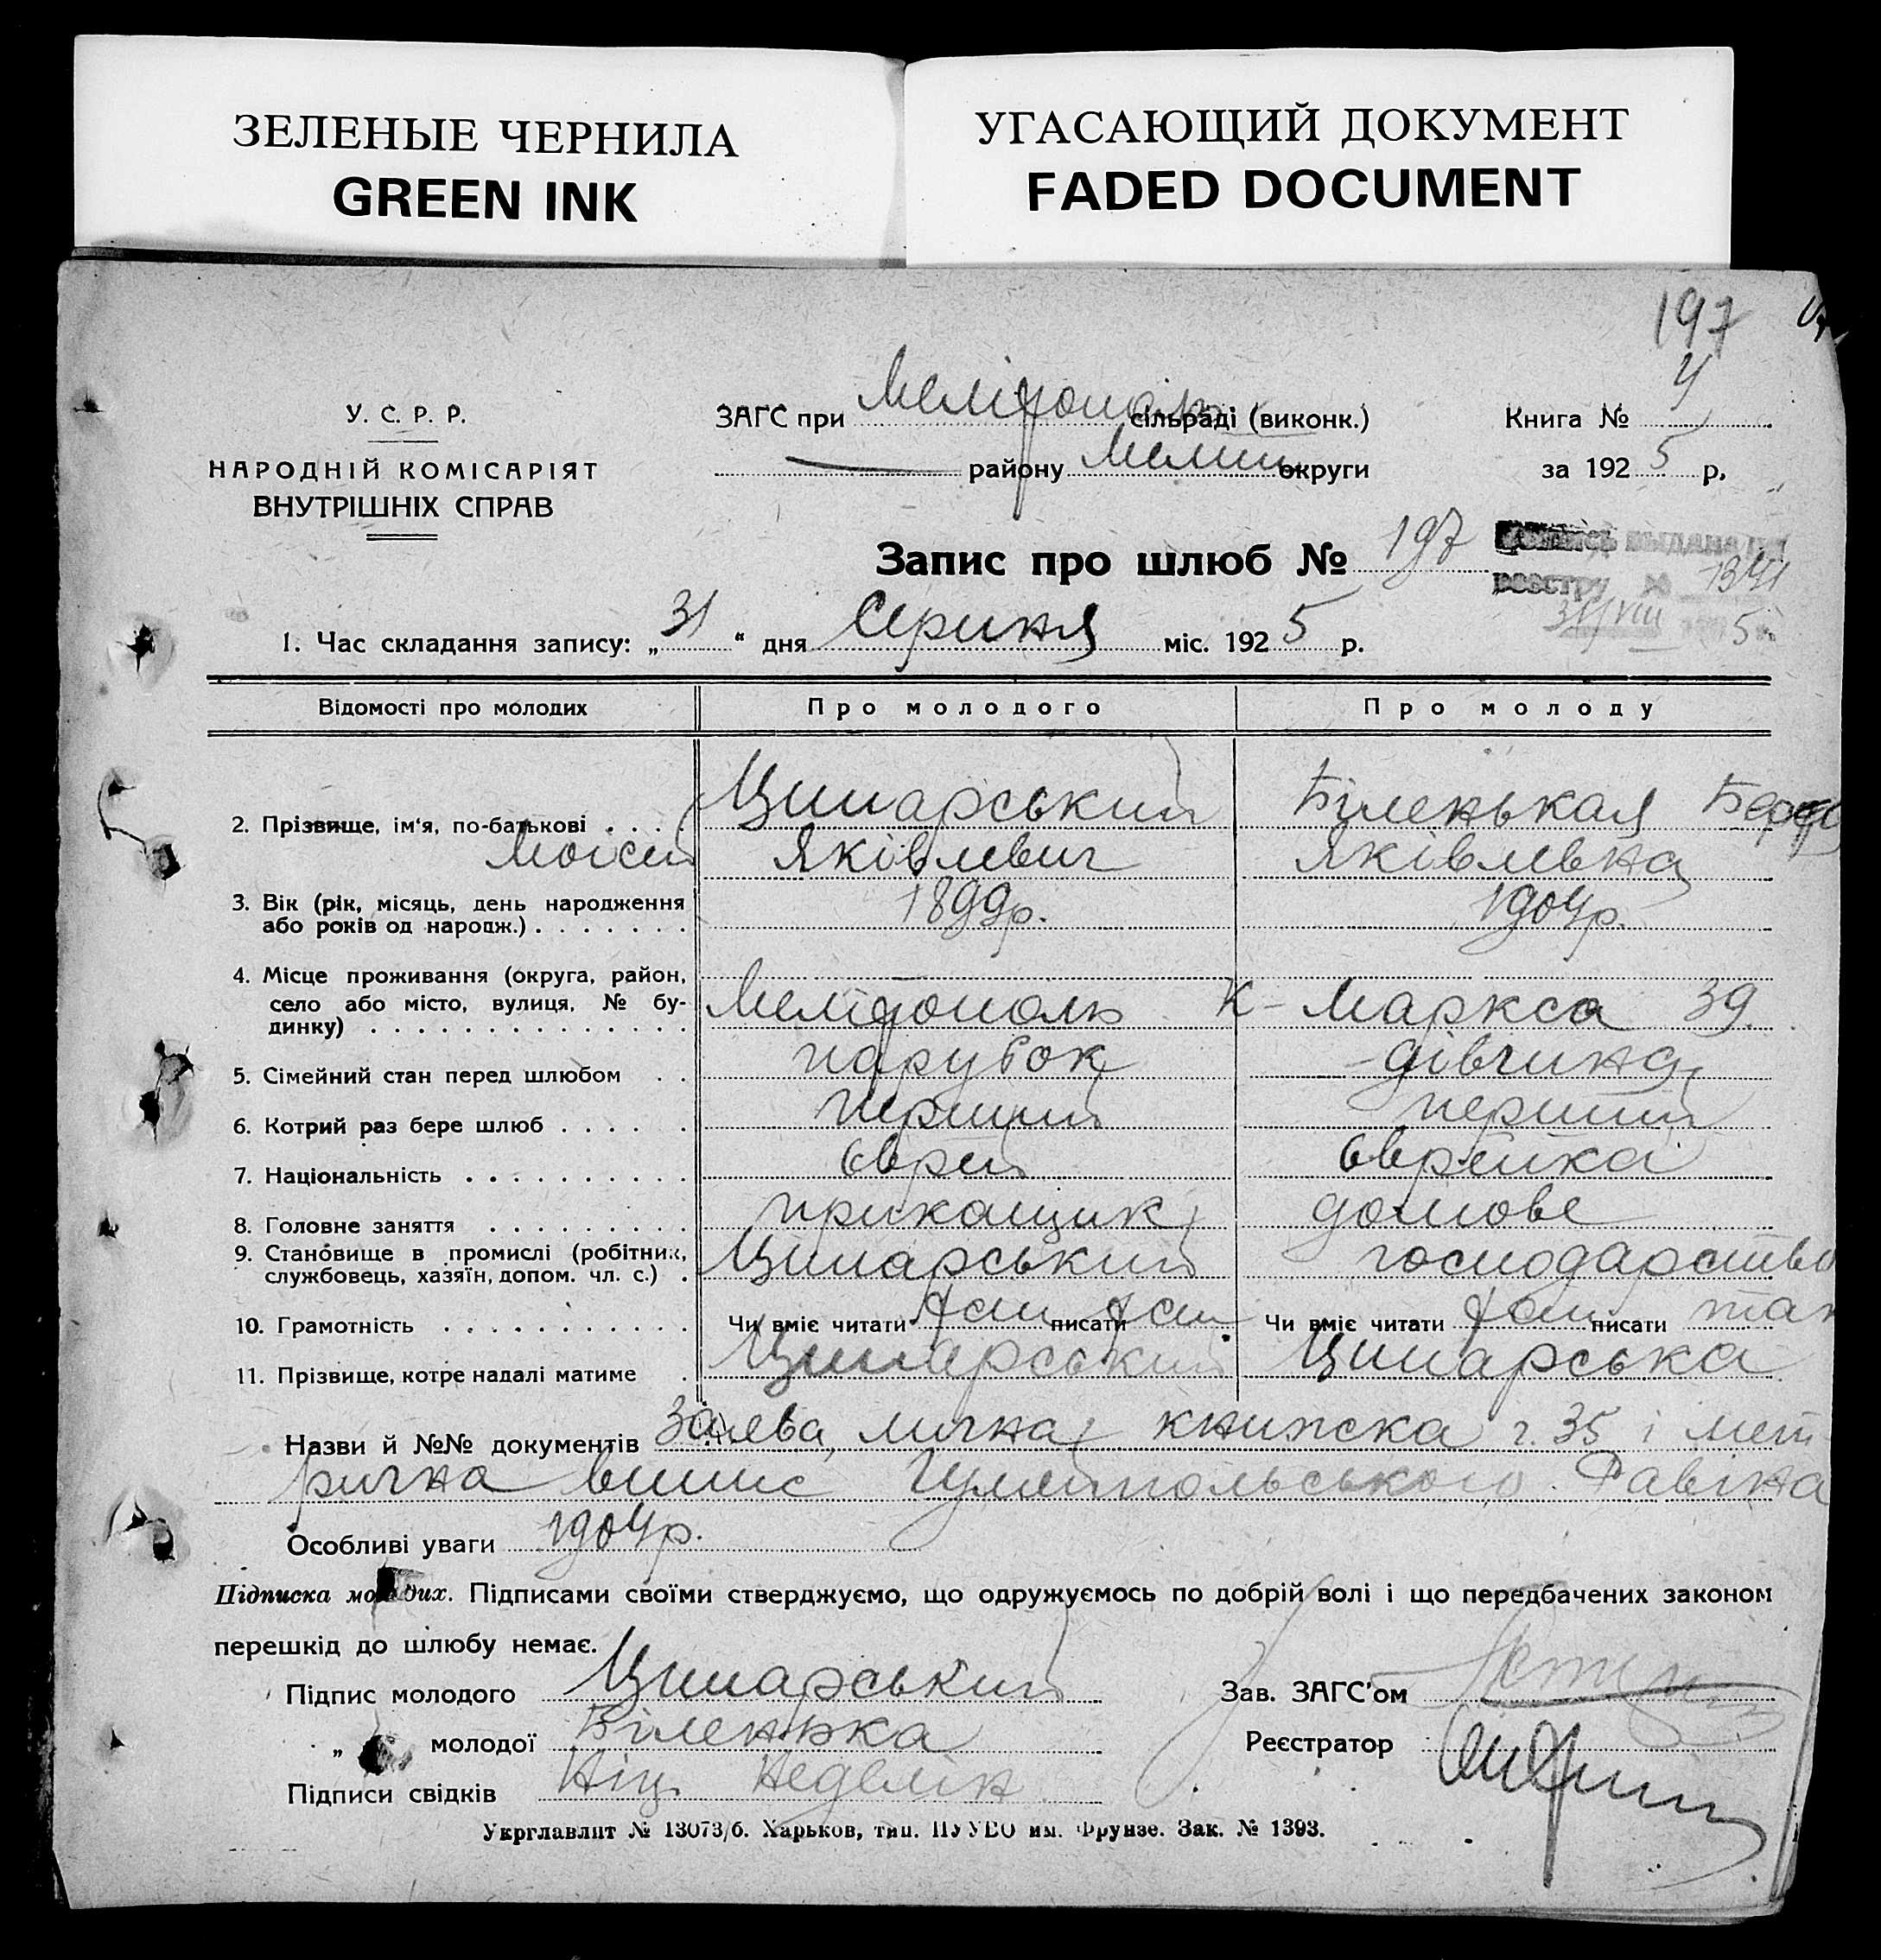 ЗЕЛЕНЫЕ ЧЕРНИЛА
GREEN INK
УГАСАЮЩИЙ ДОКУМЕНТ
FADED DOCUMENT
197
У. С. Р. Р.
НАРОДНІЙ КОМІСАРІЯТ
ВНУТРІШНІХ СПРАВ
ЗАГС при Мелітополь сільраді (виконк.)
району Мелит округи
Книга № 4
за 1925 р.
Запис про шлюб № 197
выдана по
реестру № 1341
31/VIII 5
1. Час складання запису: „31“ дня Серпня міс. 1925 р.
Відомості про молодих Про молодого Про молоду
2. Прізвище, ім'я, по-батькові Ципарський Біленькая
Мойсей Яківлевич Яківлевна
3. Вік (рік, місяць, день народження або років од народж.) 1899р. 1904р.
4. Місце проживання (округа, район, село або місто, вулиця, № будинку) Мелітополь К-Маркса 39.
5. Сімейний стан перед шлюбом парубок дівчина
6. Котрий раз бере шлюб перший перший
7. Національність єврей єврейка
8. Головне заняття прикащик домове
9. Становище в промислі (робітник, службовець, хазяїн, допом. чл. с.) Ципарський господарство
10. Грамотність Чи вміє читати писати Чи вміє читати писати так
11. Прізвище, котре надалі матиме Ципарський Ципарська
Назви й №№ документів заява, лична книжка г. 35 і мет
рична випис Гуляйпольського Равіна
Особливі уваги 1904р.
Підписка молодих. Підписами своїми стверджуємо, що одружуємось по добрій волі і що передбачених законом
перешкід до шлюбу немає.
Підпис молодого Ципарський
Зав. ЗАГС'ом
„ молодої Біленька
Реєстратор
Підписи свідків
Укрглавліт № 13073/б. Харьков, тип. ПУУВО им. Фрунзе. Зак. № 1393.